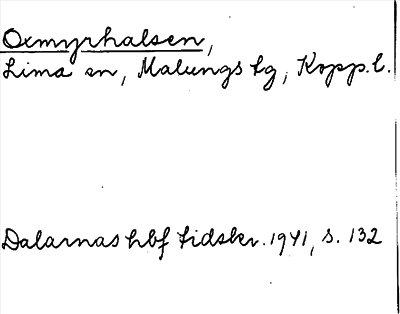 Oxmyrhalsen,
Lima sn, Malungs tg, Kopp. l.
Dalarnas hbf tidskr. 1941, s. 132